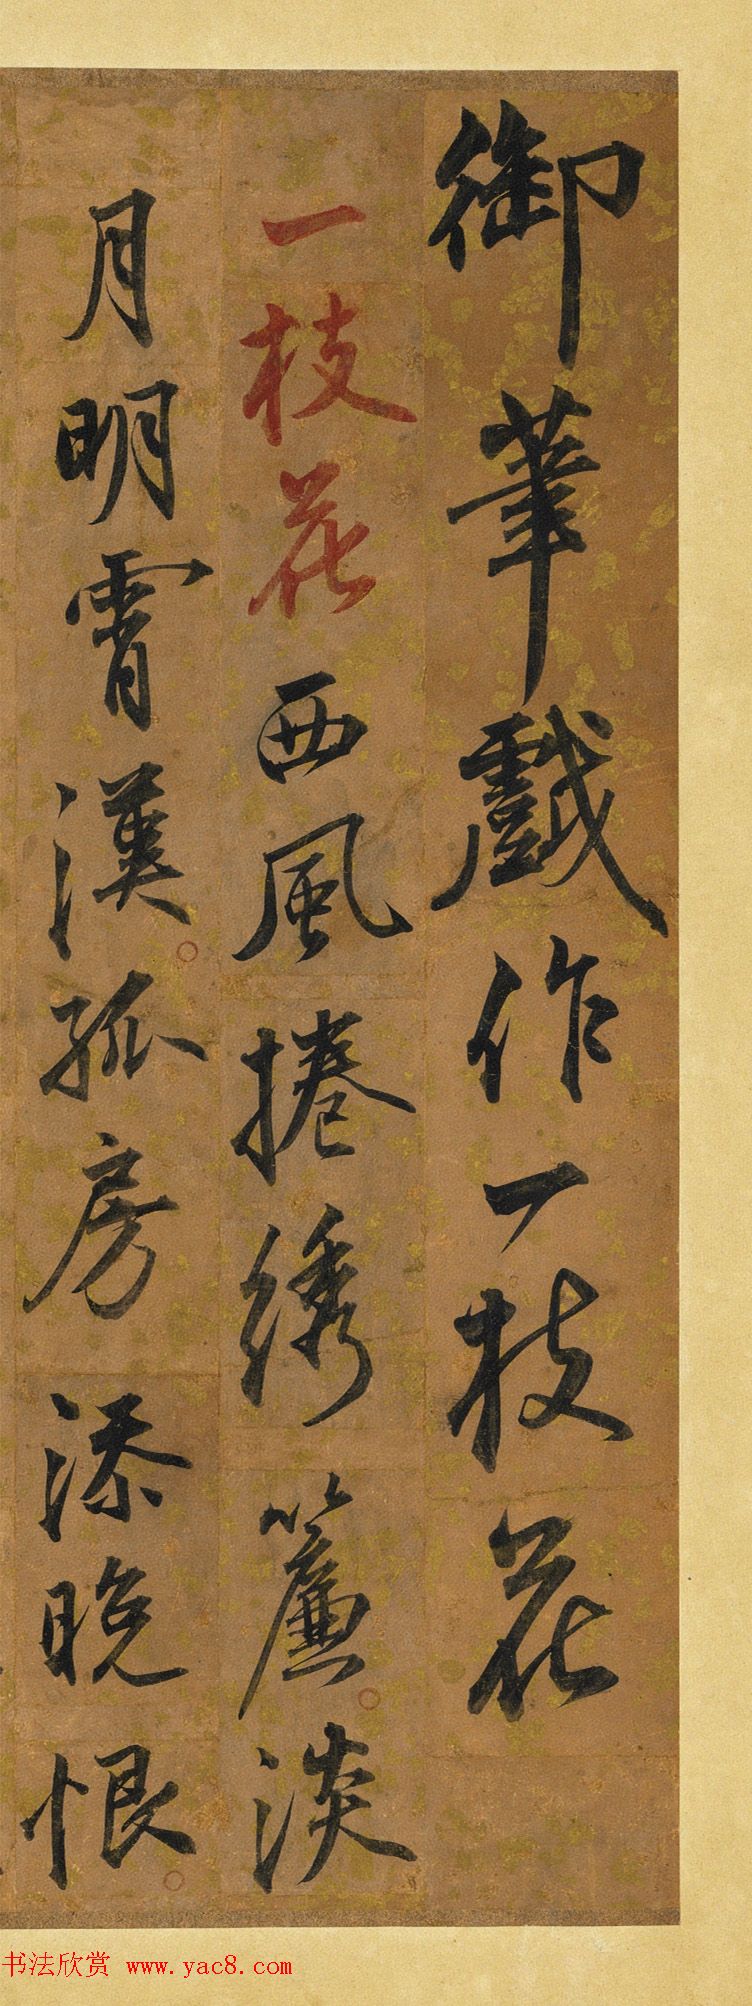 御筆戲作一枝花
一枝花西風捲绣簾淡
月明霄漢孤房添晚恨
书法欣赏 www.yac8.com